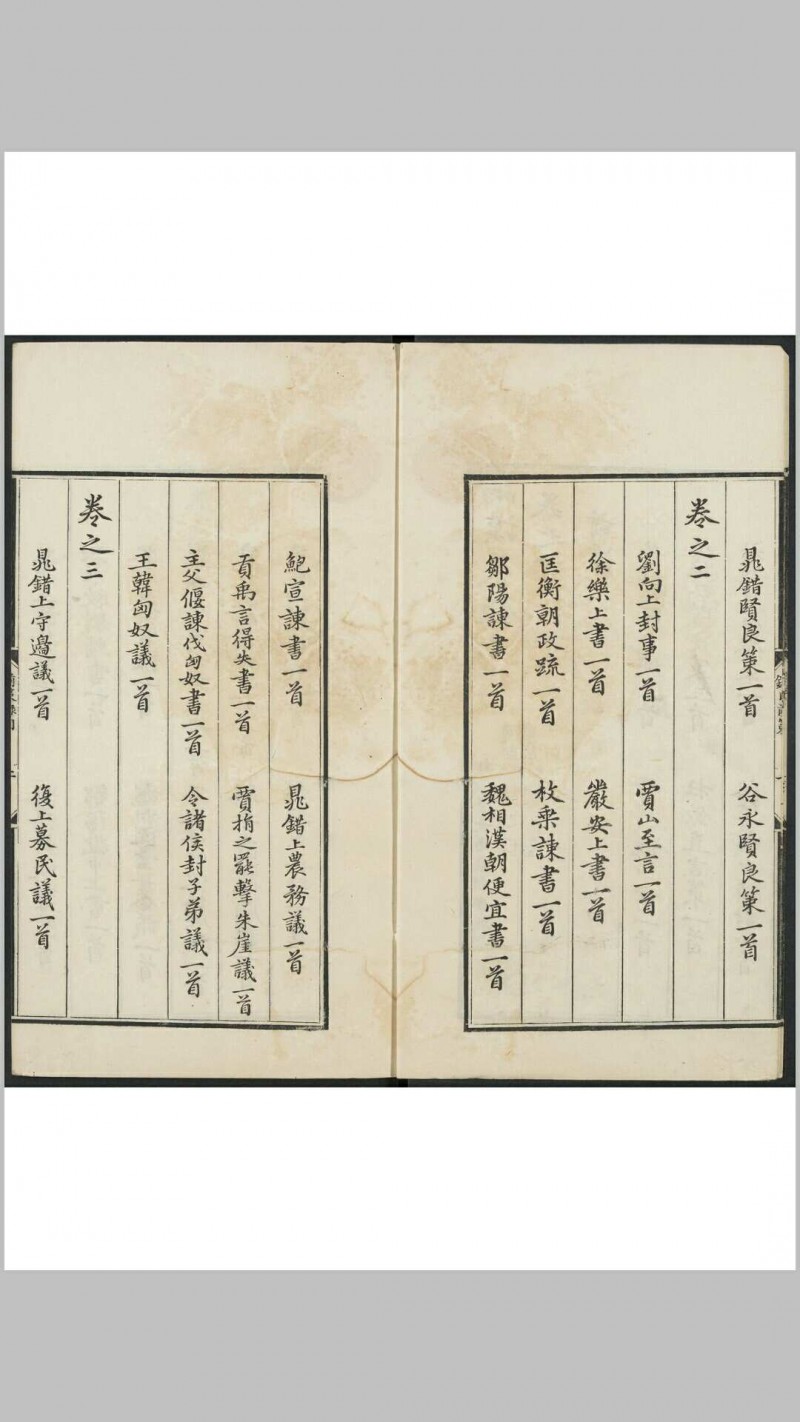 晁錯賢良策一首　谷永賢良策一首
卷之二
劉向上封事一首　賈山至言一首
徐樂上書一首　嚴安上書一首
匡衡朝政疏一首　枚乘諫書一首
鄒陽諫書一首　魏相漢朝便宜書一首
鮑宣諫書一首　晁錯上農務議一首
貢禹言得失書一首　賈捐之罷擊朱崖議一首
主父偃諫伐匈奴書一首　令諸侯封子弟議一首
王韓匈奴議一首
卷之三
晁錯上守邊議一首　復上募民議一首